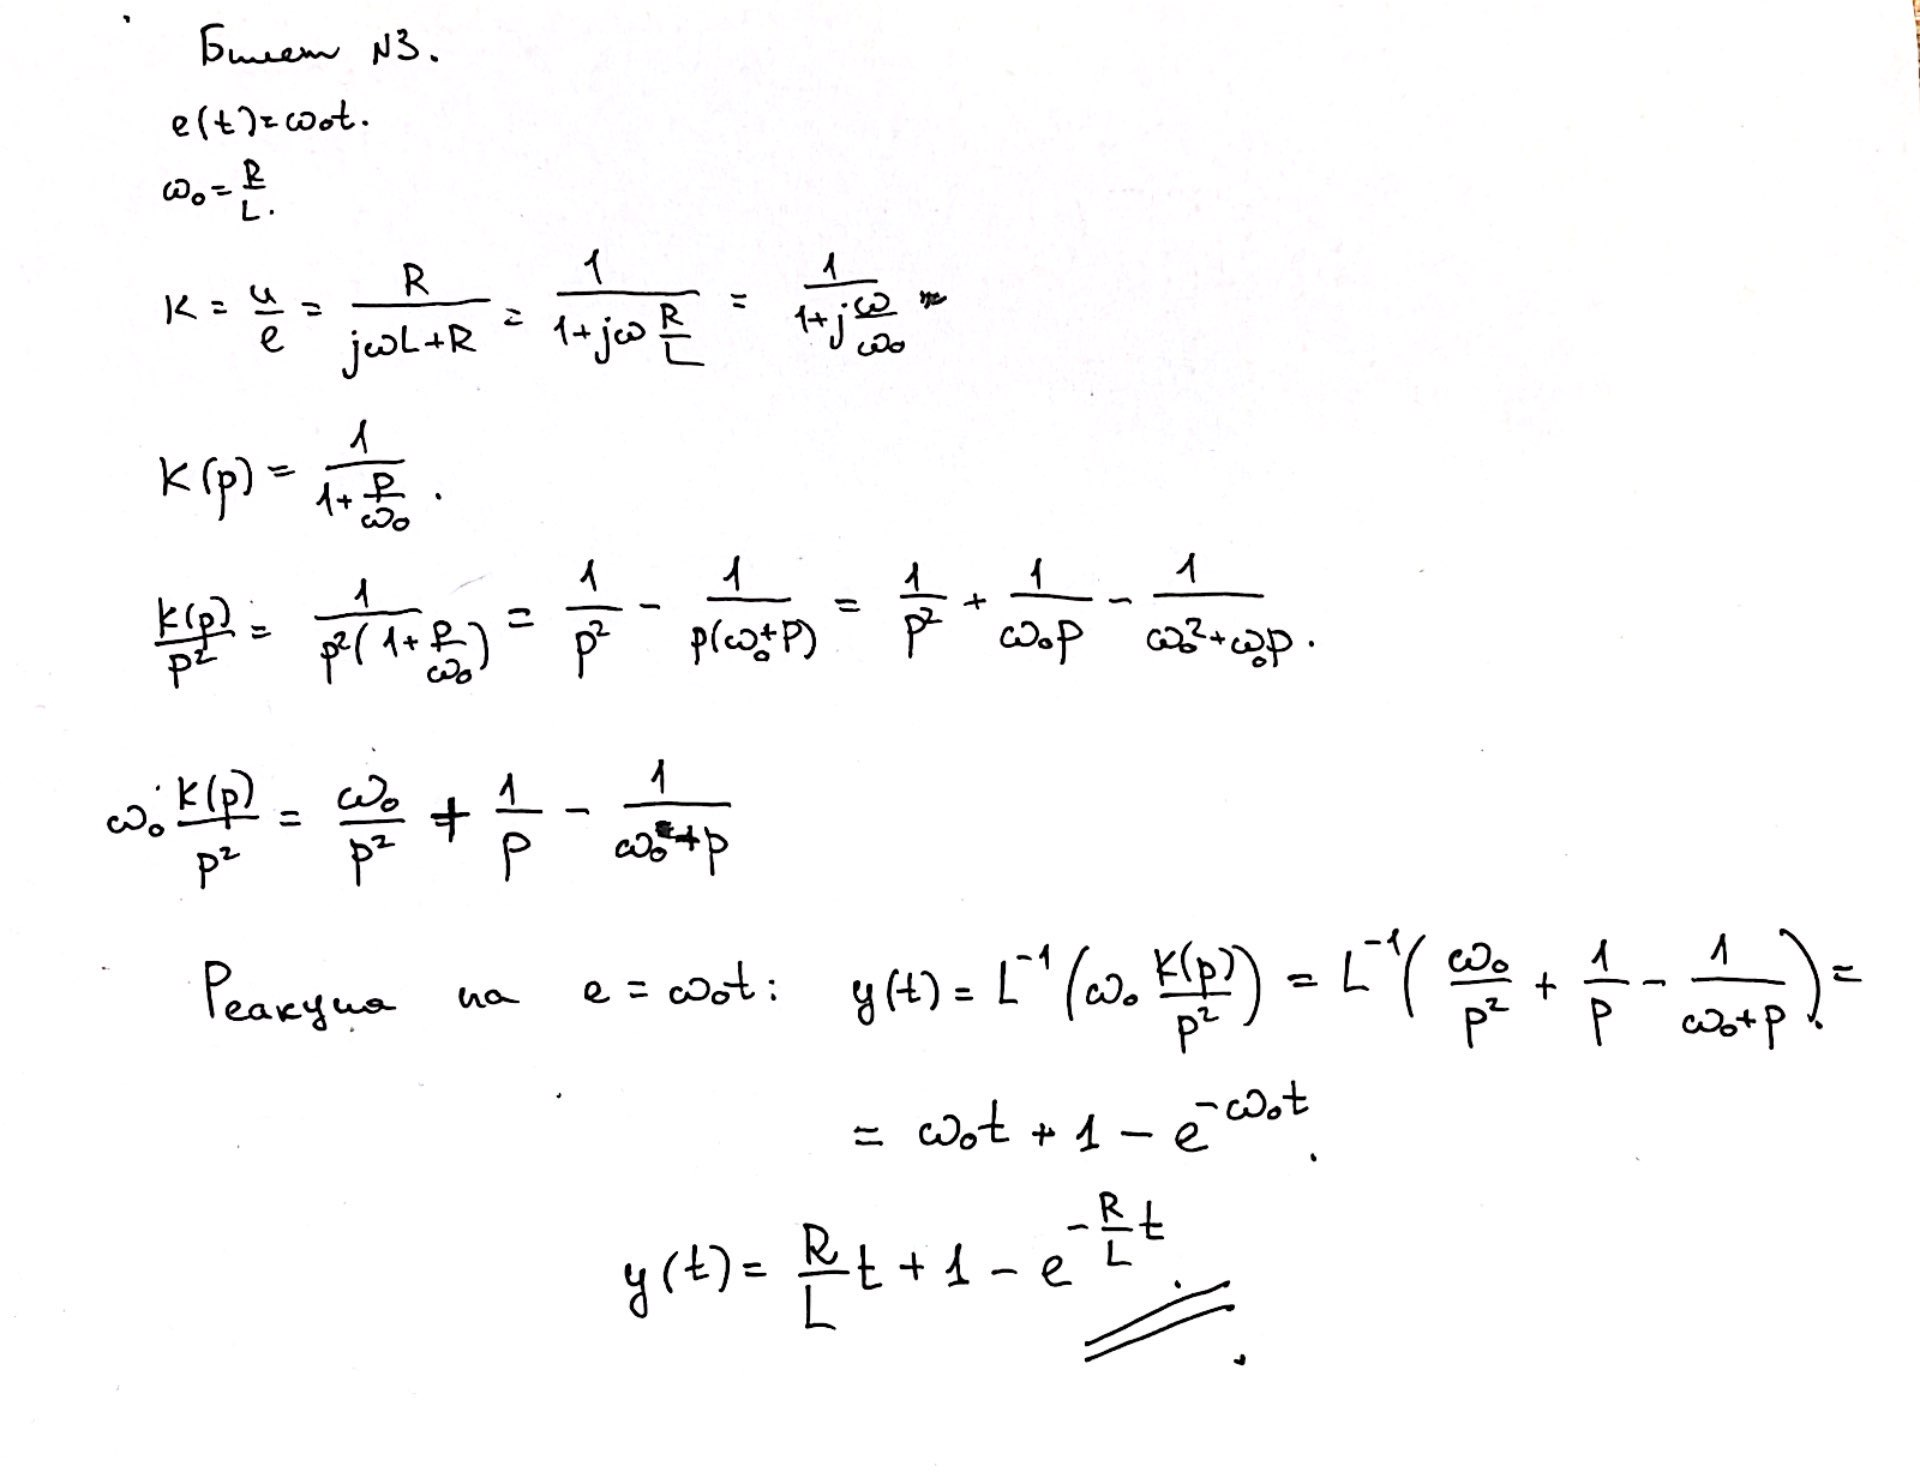 Билет №3.
e(t)=ω₀t.
ω₀ = R/L.
K = u/e = R/(jωL+R) = 1/(1+jω R/L) = 1/(1+j ω/ω₀)
K(p) = 1/(1+ p/ω₀).
K(p)/p² = 1/(p²(1+ p/ω₀)) = 1/p² - 1/(p(ω₀+p)) = 1/p² + 1/(ω₀p) - 1/(ω₀²+ω₀p).
ω₀·K(p)/p² = ω₀/p² + 1/p - 1/(ω₀+p)
Реакция на e = ω₀t: y(t) = L⁻¹(ω₀ K(p)/p²) = L⁻¹(ω₀/p² + 1/p - 1/(ω₀+p)) =
= ω₀t + 1 - e^(-ω₀t).
y(t) = R/L t + 1 - e^(-R/L t).